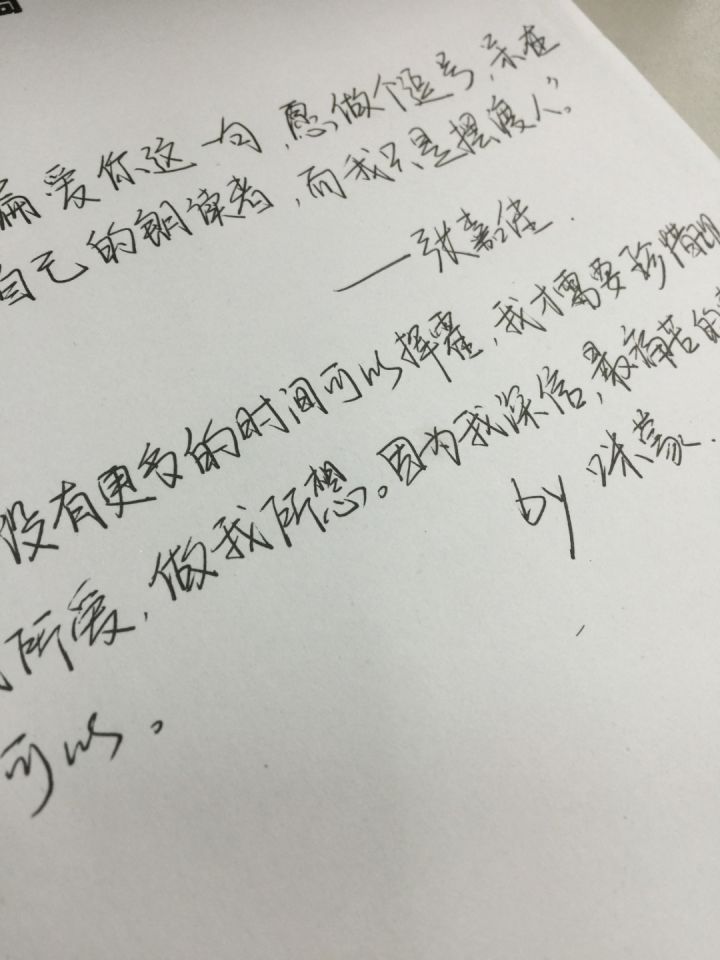 偏爱你这一句,愿做个逗号,呆在
自己的朗读者,而我只是摆渡人。”
——张嘉佳.
没有更多的时间可以挥霍,我才需要珍惜
所爱,做我所想。因为我深信,最痛苦的
by 咪蒙.
可以。